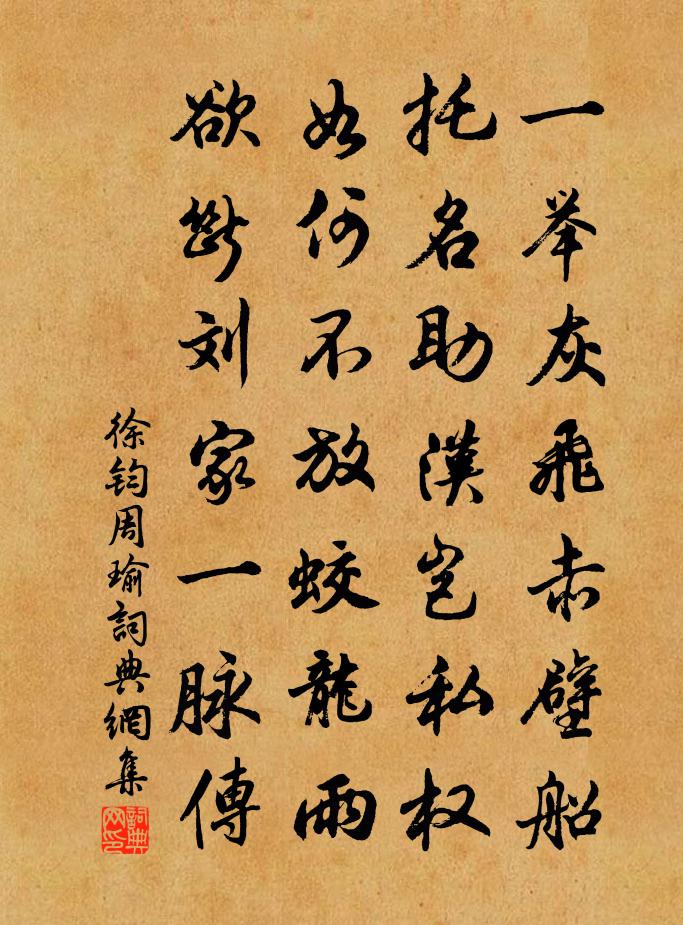 一举灰飛赤壁船
托名助漢岂私权
如何不放蛟龍雨
欲斷刘家一脉傳
徐鈞周瑜詞典網集
詞典网印